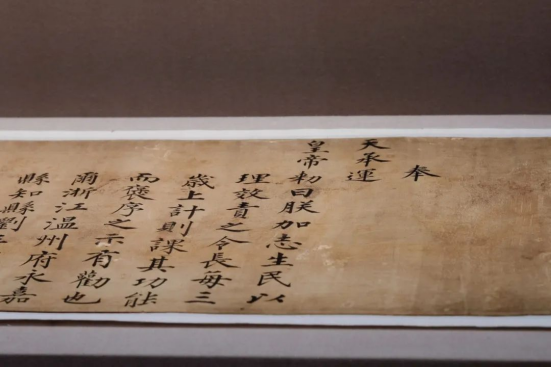 奉
天承運
皇帝勑曰朕加志生民以
理效責之令長每三
歲上計則課其功能
而褒序之示有勸也
爾浙江温州府永嘉
縣知縣劉